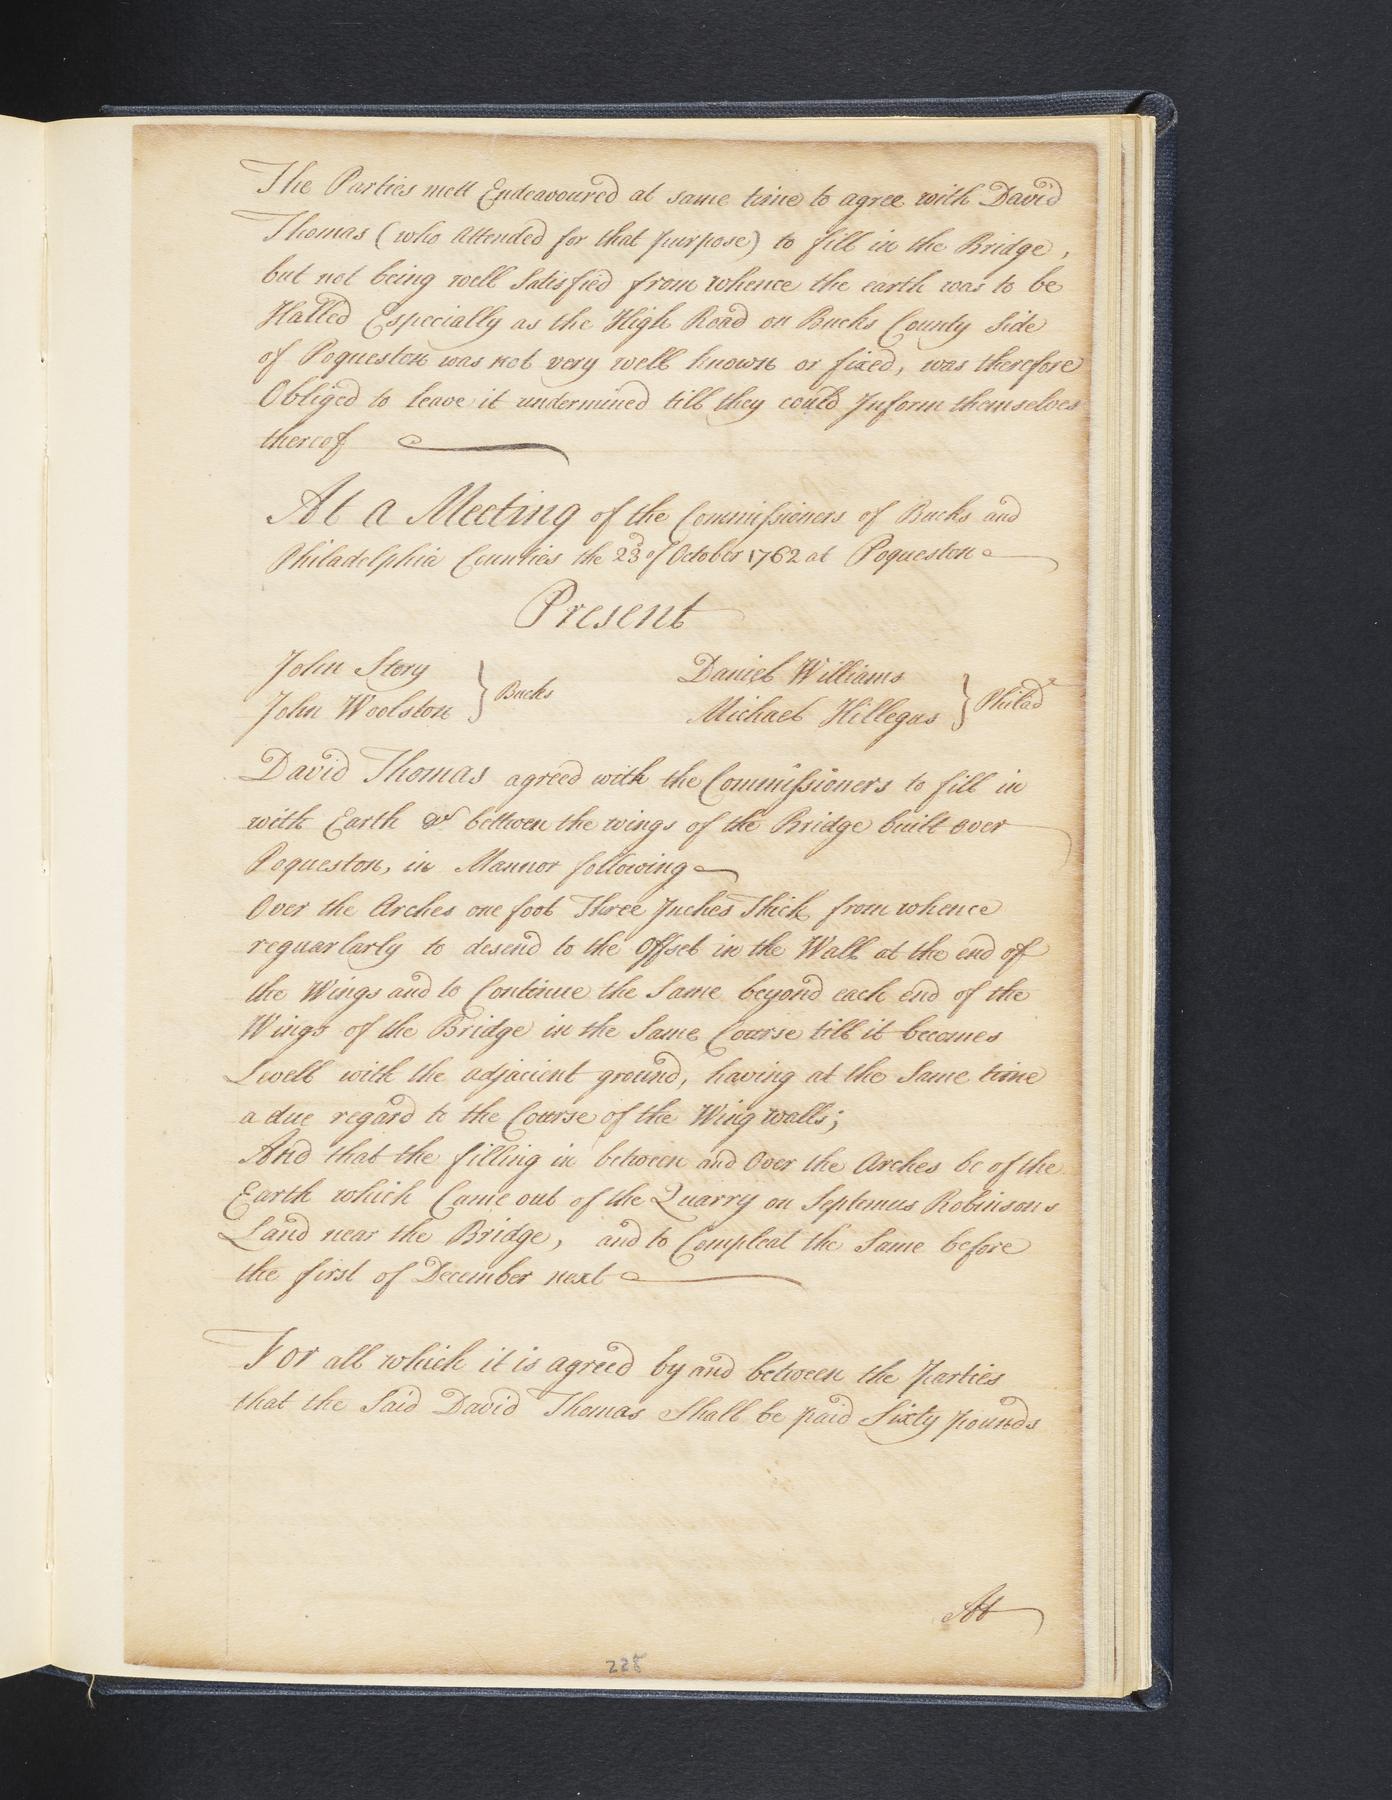 The Parties mett Endeavoured at same time to agree with David
Thomas (who Attended for that purpose) to fill in the Bridge,
but not being well Satisfied from whence the earth was to be
Halled Especially as the High Road on Bucks County Side
of Poqueston was not very well known or fixed, was therefore
Obliged to leave it undermined till they could Inform themselves
thereof
At a Meeting of the Commissioners of Bucks and
Philadelphia Counties the 23d of October 1762 at Poqueston
Present
John Story
John Woolston } Bucks
Daniel Williams
Michael Hillegas } Philada
David Thomas agreed with the Commissioners to fill in
with Earth &c between the wings of the Bridge built over
Poqueston, in Mannor following
Over the Arches one foot Three Inches Thick from whence
reguarlarly to desend to the Offset in the Wall at the end of
the Wings and to Continue the Same beyond each end of the
Wings of the Bridge in the Same Course till it becomes
Levell with the adjacient ground, having at the Same time
a due regard to the Course of the Wing walls;
And that the filling in between and Over the Arches be of the
Earth which Came out of the Quarry on Septemus Robinsons
Land near the Bridge, and to Compleat the Same before
the first of December next
For all which it is agreed by and between the Parties
that the Said David Thomas Shall be paid Sixty pounds
Att
228